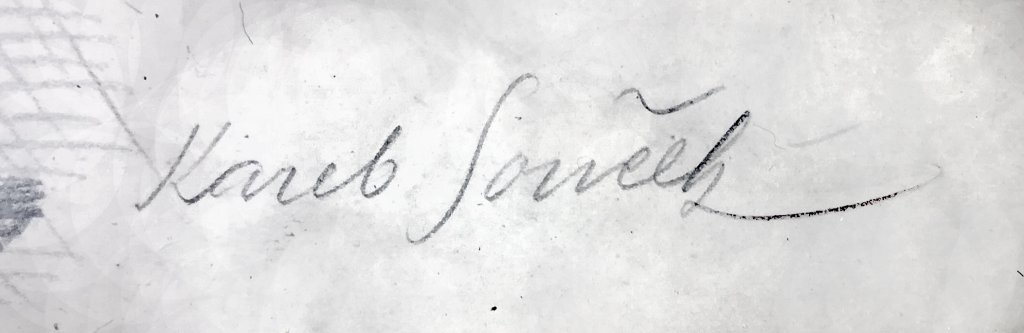 Karel Souček